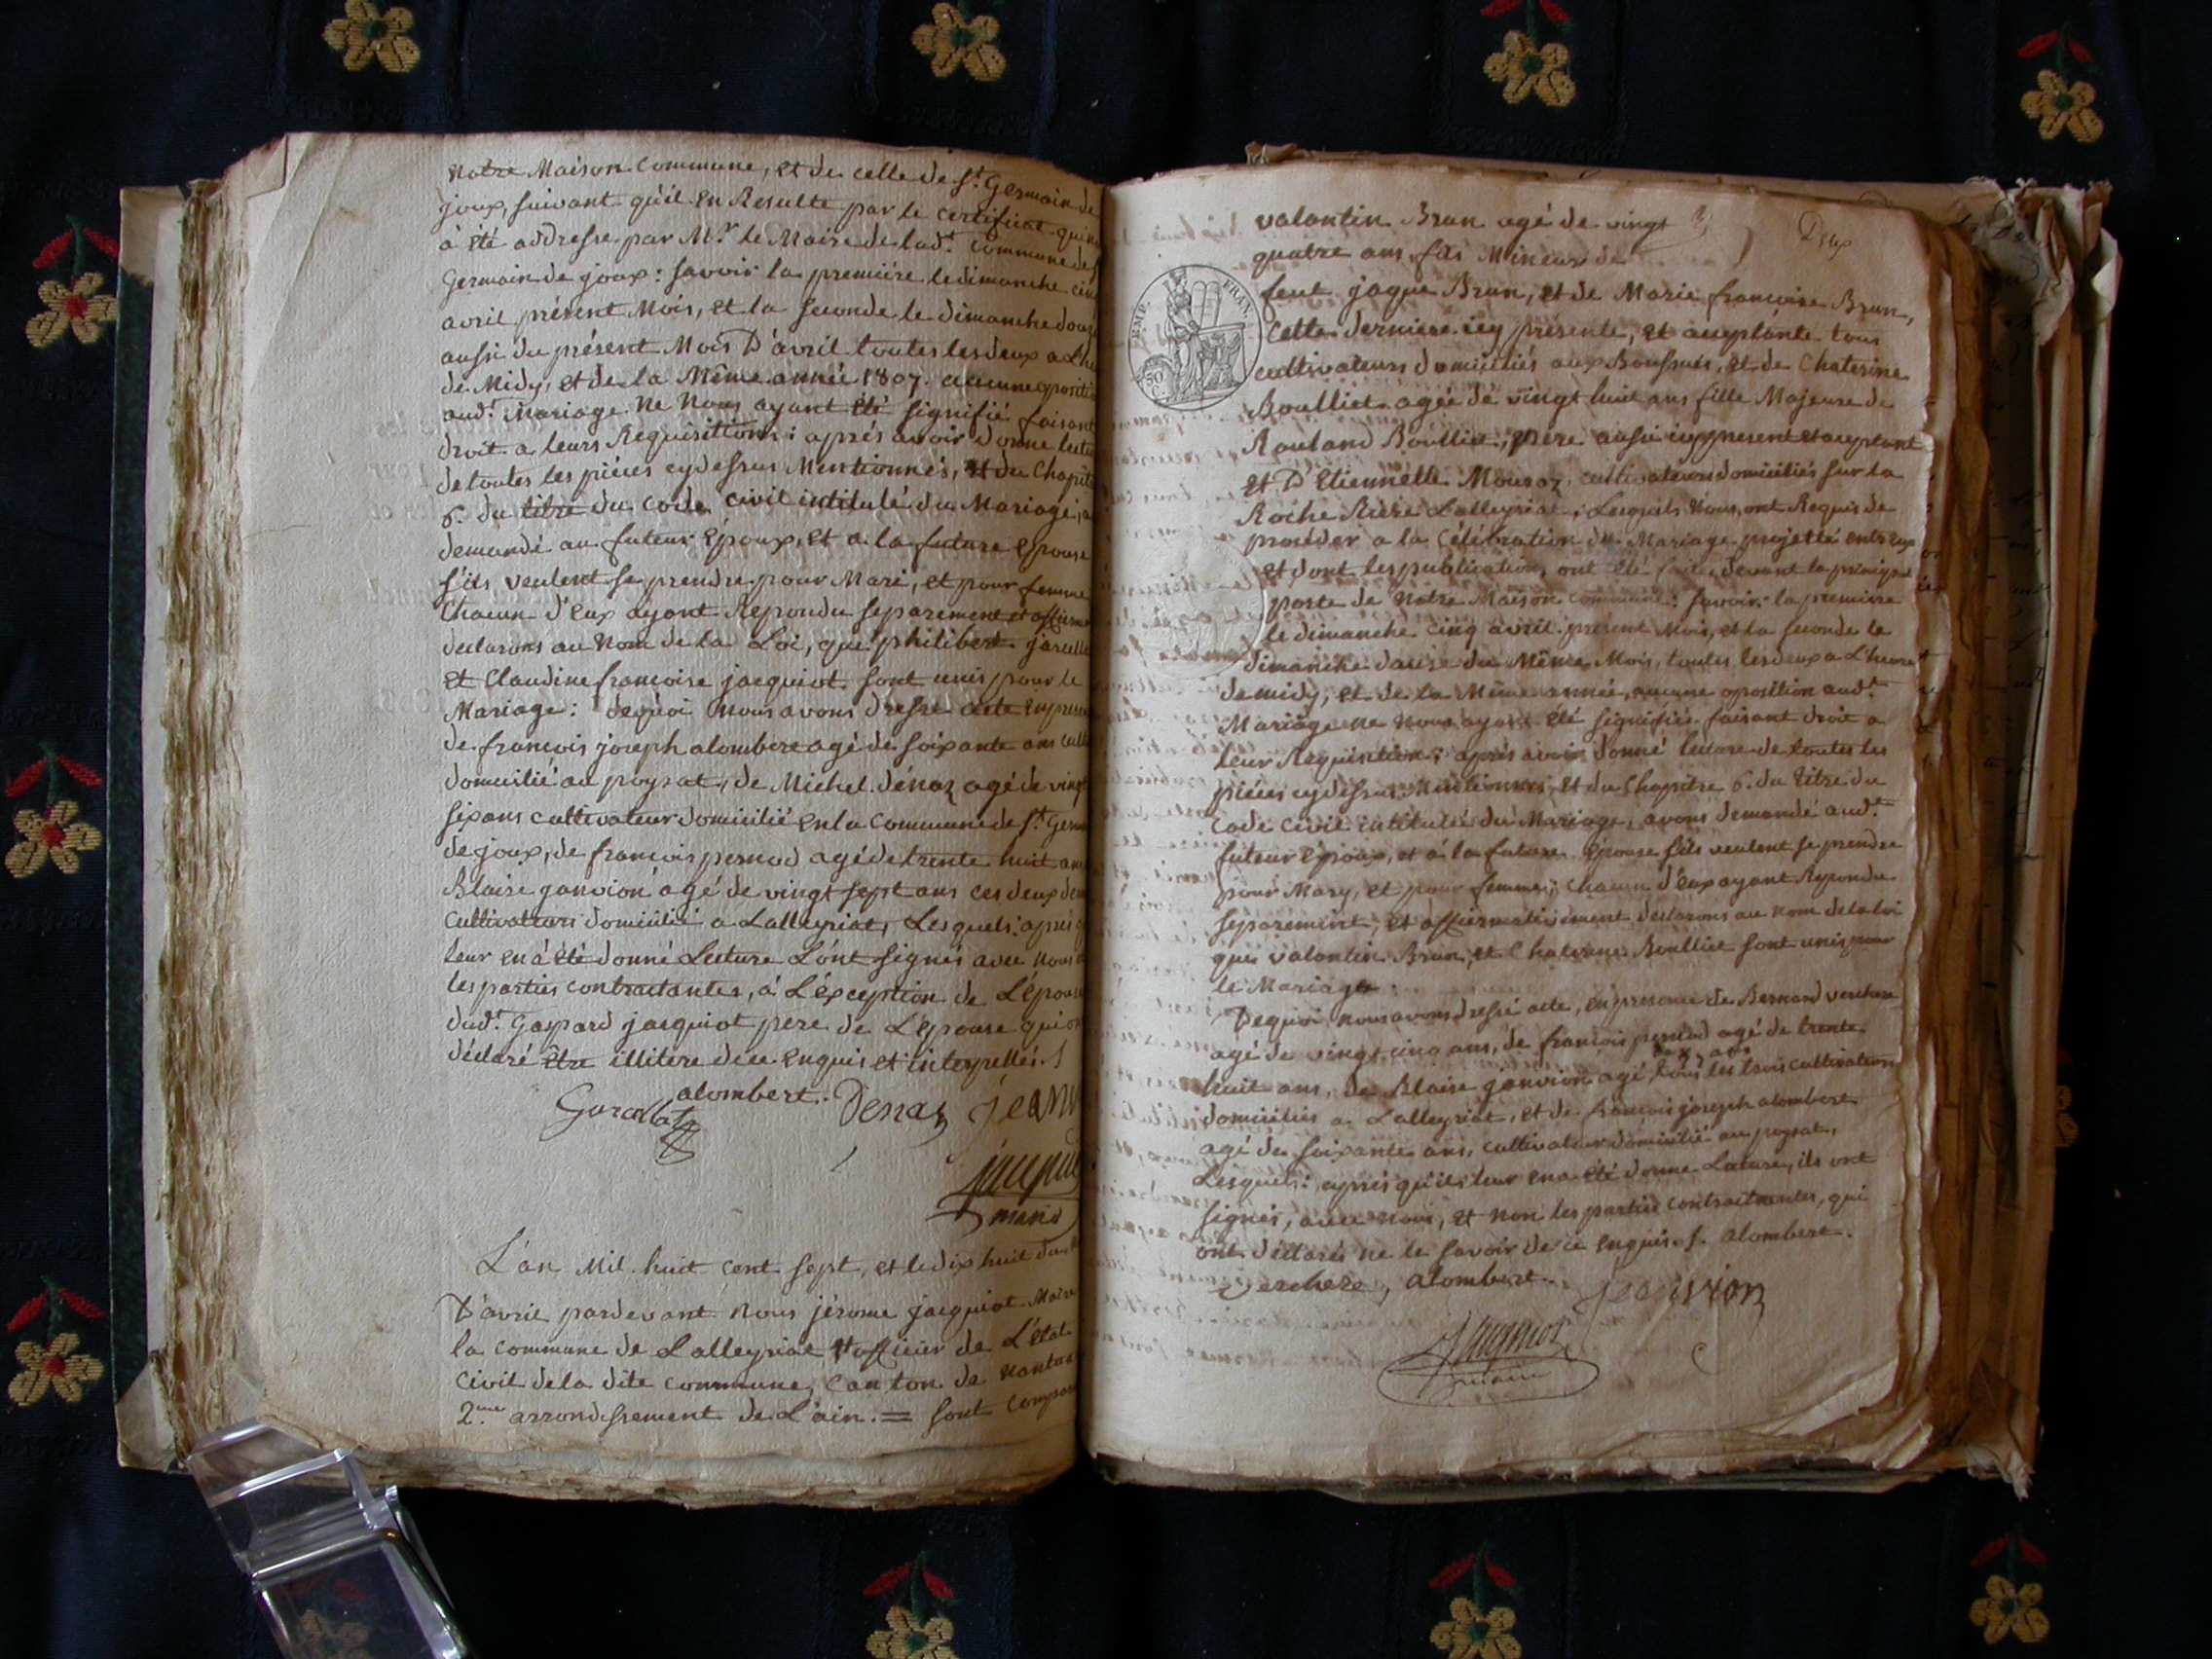 Notre Maison Commune, et de celle de St. Germain de
joux, suivant qu'il en Resulte par le certificat qui
à été addressé par Mr. le Maire de ladt. Commune de
Germain de joux: savoir la premiére le dimanche cinq
avril présent Mois, et la seconde le dimanche douze
aussi du présent Mois D'avril toutes les deux a L'he
de Midy, et de la Même année 1807. aucune opositi
audt. Mariage ne Nous ayant été signifié faisant
droit a leurs Requisitions: aprés avoir donné lectu
de toutes les piéces cydessus Mentionnés, et du Chapit
6. du titre du code civil intitulé du Mariage, a
demandé au futeur Epoux, et a la future Epouse
s'ils veulent se prendre pour Mari, et pour femme
Chacun d'eux ayant Repondu separement et affirm
declarons au Nom de la Loi, que philibert
et Claudine francoise jacquiot sont unis pour le
Mariage: dequoi Nous avons dressé acte en presen
de francois joseph alombert agé de soixante ans cult
domicilié au poysat, de Michel dénaz agé de vingt
six ans cultivateur domicilié en la commune de St. Germ
de joux, de francois pernod agé de trente huit ans
Blaise janvion agé de vingt sept ans ces deux de
Cultivateurs domicilié a Lalleyriat, Lesquels: aprés q
leur en á été donné Lecture L'ont signés avec nous
les parties contractantes, á L'éxception de L'épouse
dudt. Gaspard jacquiot pere de L'epouse qui on
déclaré être illitere de ce enquis et interpellés.
alombert. Denaz jeanv
L'an Mil huit cent sept, et le dix huit du
D'avril pardevant Nous jérome jacquiot Maire
la commune de Lalleyriat et officier de L'état
Civil de la dite commune, canton de Nantua
2.me arrondissement de L'ain. = sont compar
Deux
valantin Brun agé de vingt
quatre ans, fils Mineur de
feut jaque Brun, et de Marie francoise Brun,
cette derniere icy présente, et acceptante tous
cultivateurs domiciliés aux et de Chaterine
Boulliet agée de vingt huit ans fille Majeure de
Rouland Boulliet, pere aussi icy present et aceptant
et D'Etiennette cultivateurs domiciliés sur la
Roche Riére Lalleyriat, Lesquels Nous ont Requis de
procéder a la Célébration du Mariage projetté entreux
et dont les publications ont été faites devant la principal
porte de Notre Maison commune: savoir la premiere
le dimanche cinq avril present Mois, et la seconde le
dimanche douze du Même Mois, toutes les deux a L'heure
de midy, et de la Même année, aucune oposition audt.
Mariage ne Nous ayant été signifiée faisant droit a
leur Requisition; aprés avoir donné lecture de toutes les
piéces cydessus Mentionnés, et du Chapitre 6. du titre du
Code civil intitulé du Mariage, avons demandé audt.
futeur Epoux, et á la future Epouse s'ils veulent se prendre
pour Mary, et pour femme; chacun d'eux ayant Repondu
separement, et affirmativement declarons au nom de la loi
que valantin Brun, et Chaterine Boulliet sont unis pour
le Mariage.
Dequoi nous avons dressé acte, en presence de Bernard verchere
agé de vingt cinq ans, de francois pernod agé de trente
huit ans, de Blaise janvion agé tous les trois cultivateurs
domiciliés a Lalleyriat, et de francois joseph alombert
agé de soixante ans, cultivateur domicilié au poysat,
Lesquels: aprés qu'il leur en a été donné Lecture, ils ont
signés, avec nous, et non les parties contractantes, qui
ont déclarés ne le savoir de ce enquis. f. alombert.
Verchere, alombert. jeanvion
jacquiot
maire